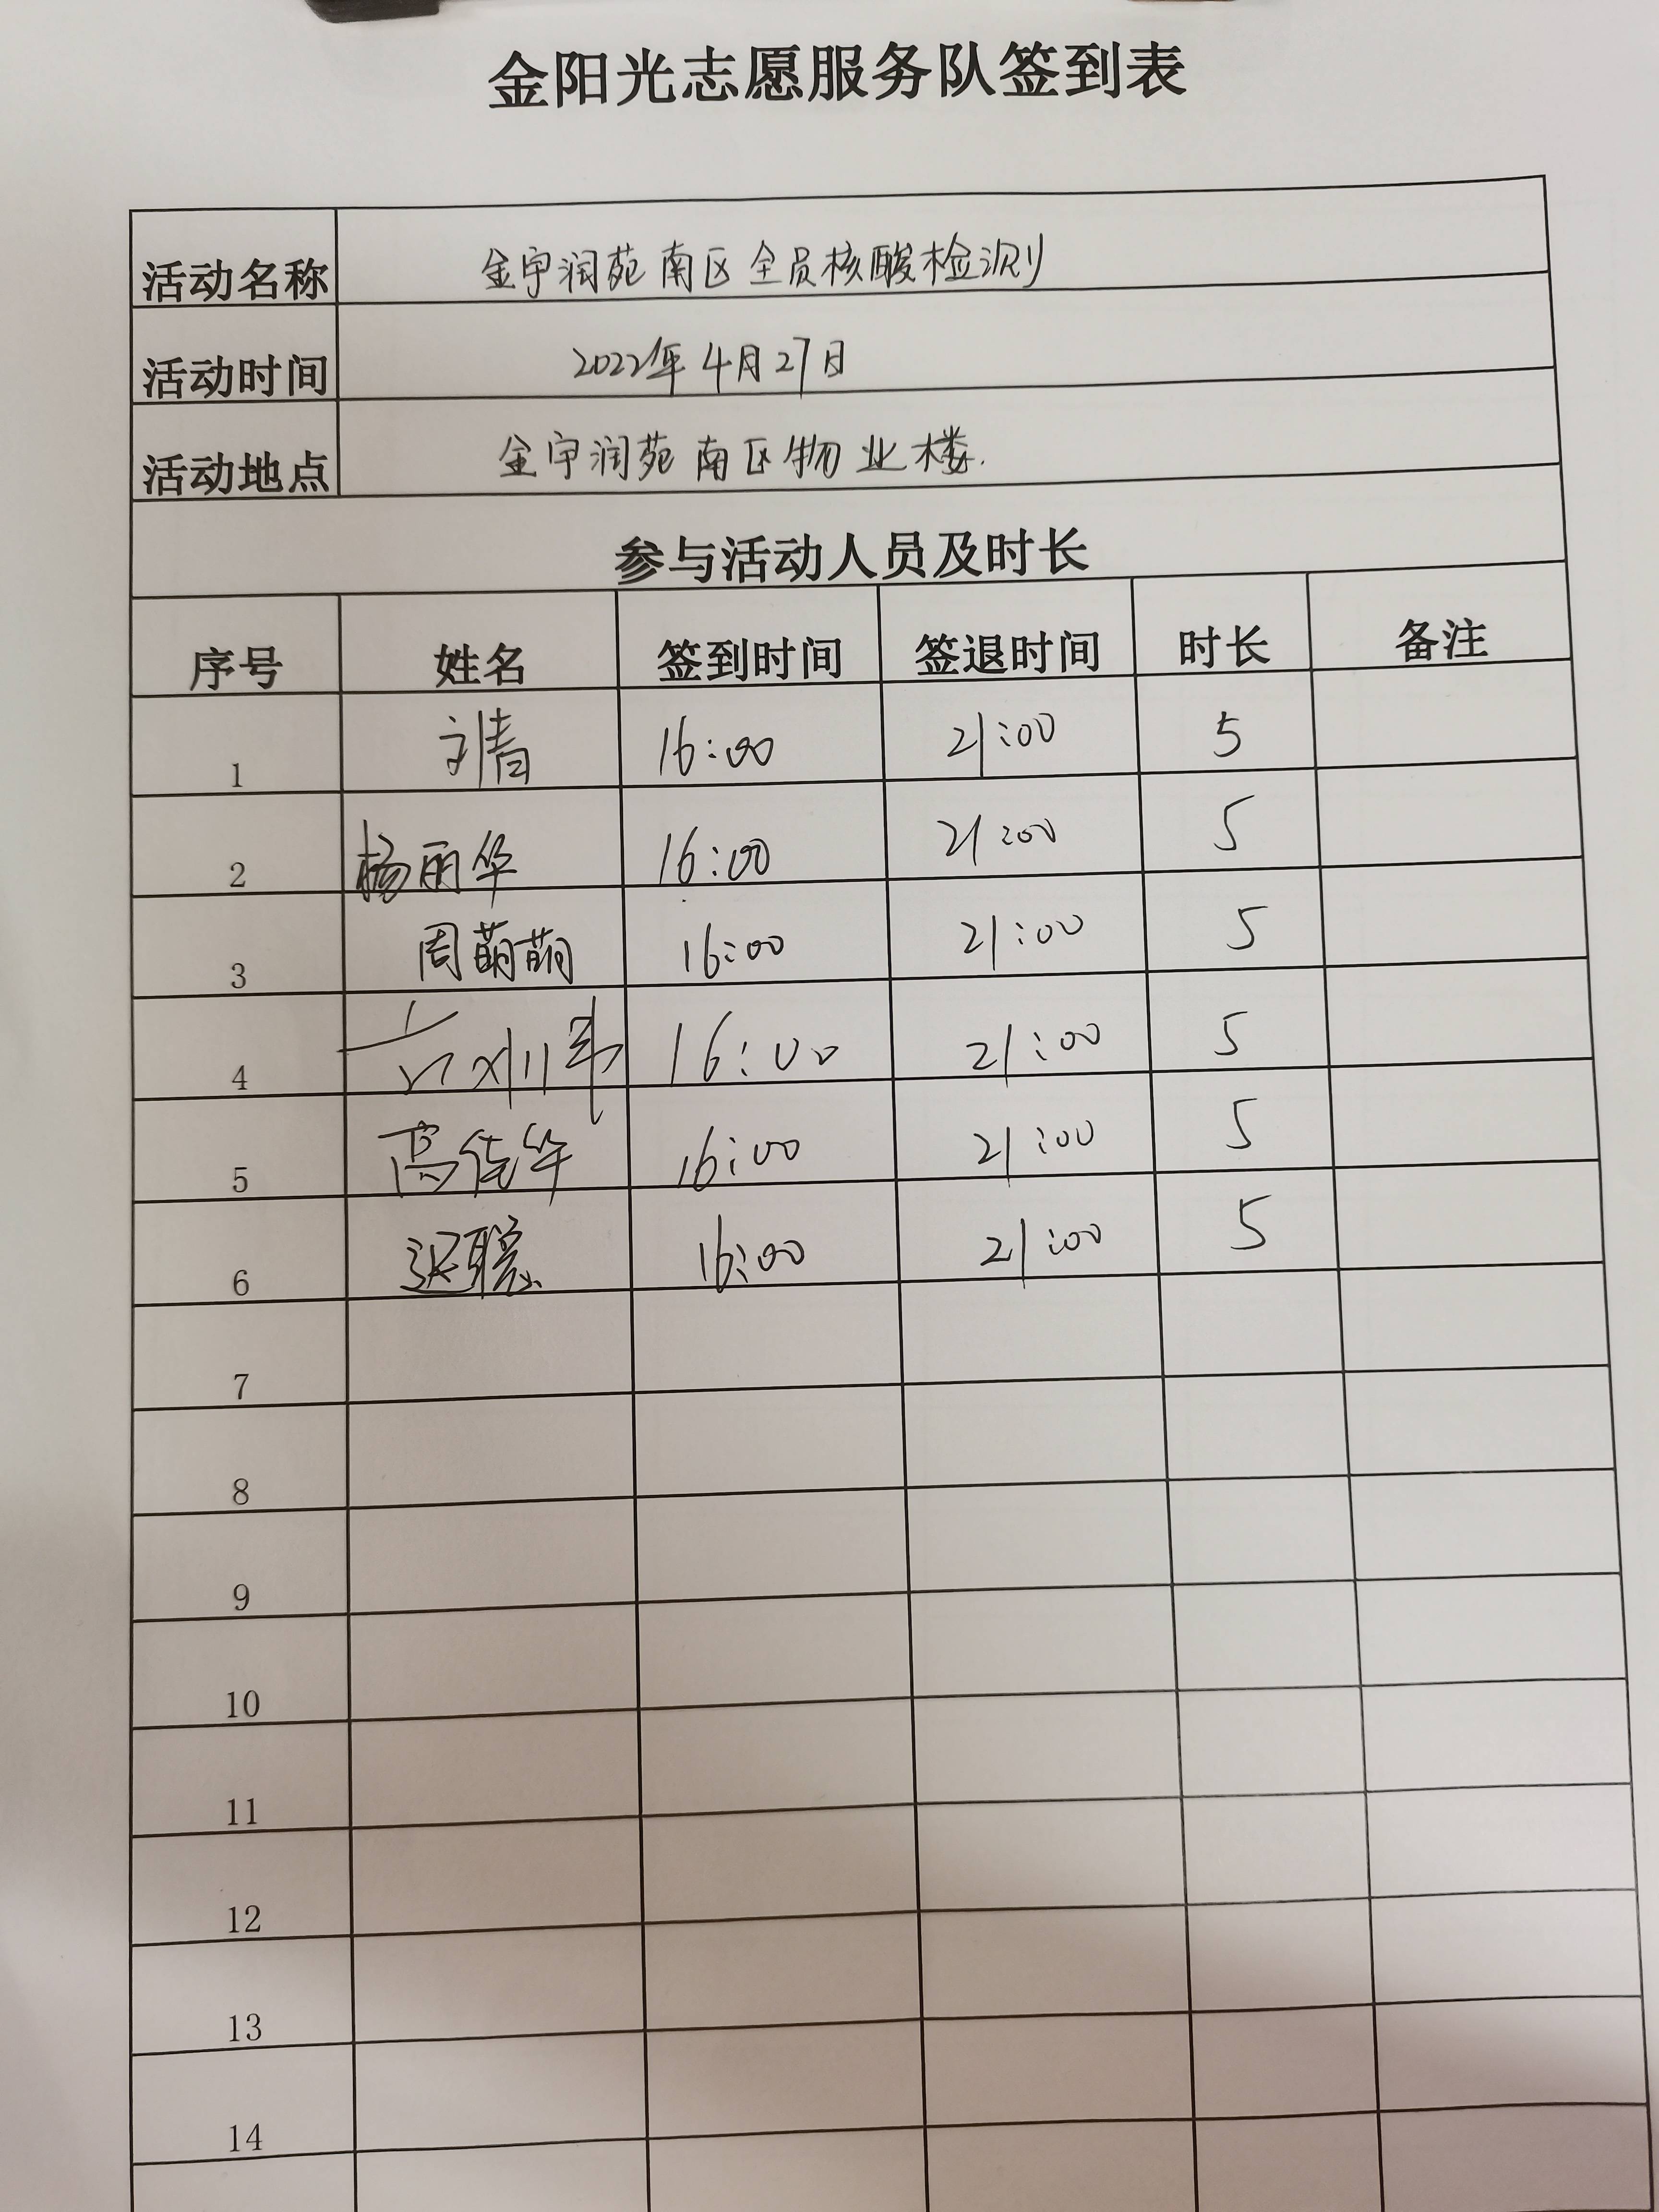 金阳光志愿服务队签到表
活动名称 金宇润苑南区全员核酸检测
活动时间 2022年4月27日
活动地点 金宇润苑南区物业楼.
参与活动人员及时长
序号 姓名 签到时间 签退时间 时长 备注
1 刘青 16:00 21:00 5
2 杨丽华 16:00 21:00 5
3 周萌萌 16:00 21:00 5
4 16:00 21:00 5
5 高佳华 16:00 21:00 5
6 迟聪 16:00 21:00 5
7
8
9
10
11
12
13
14